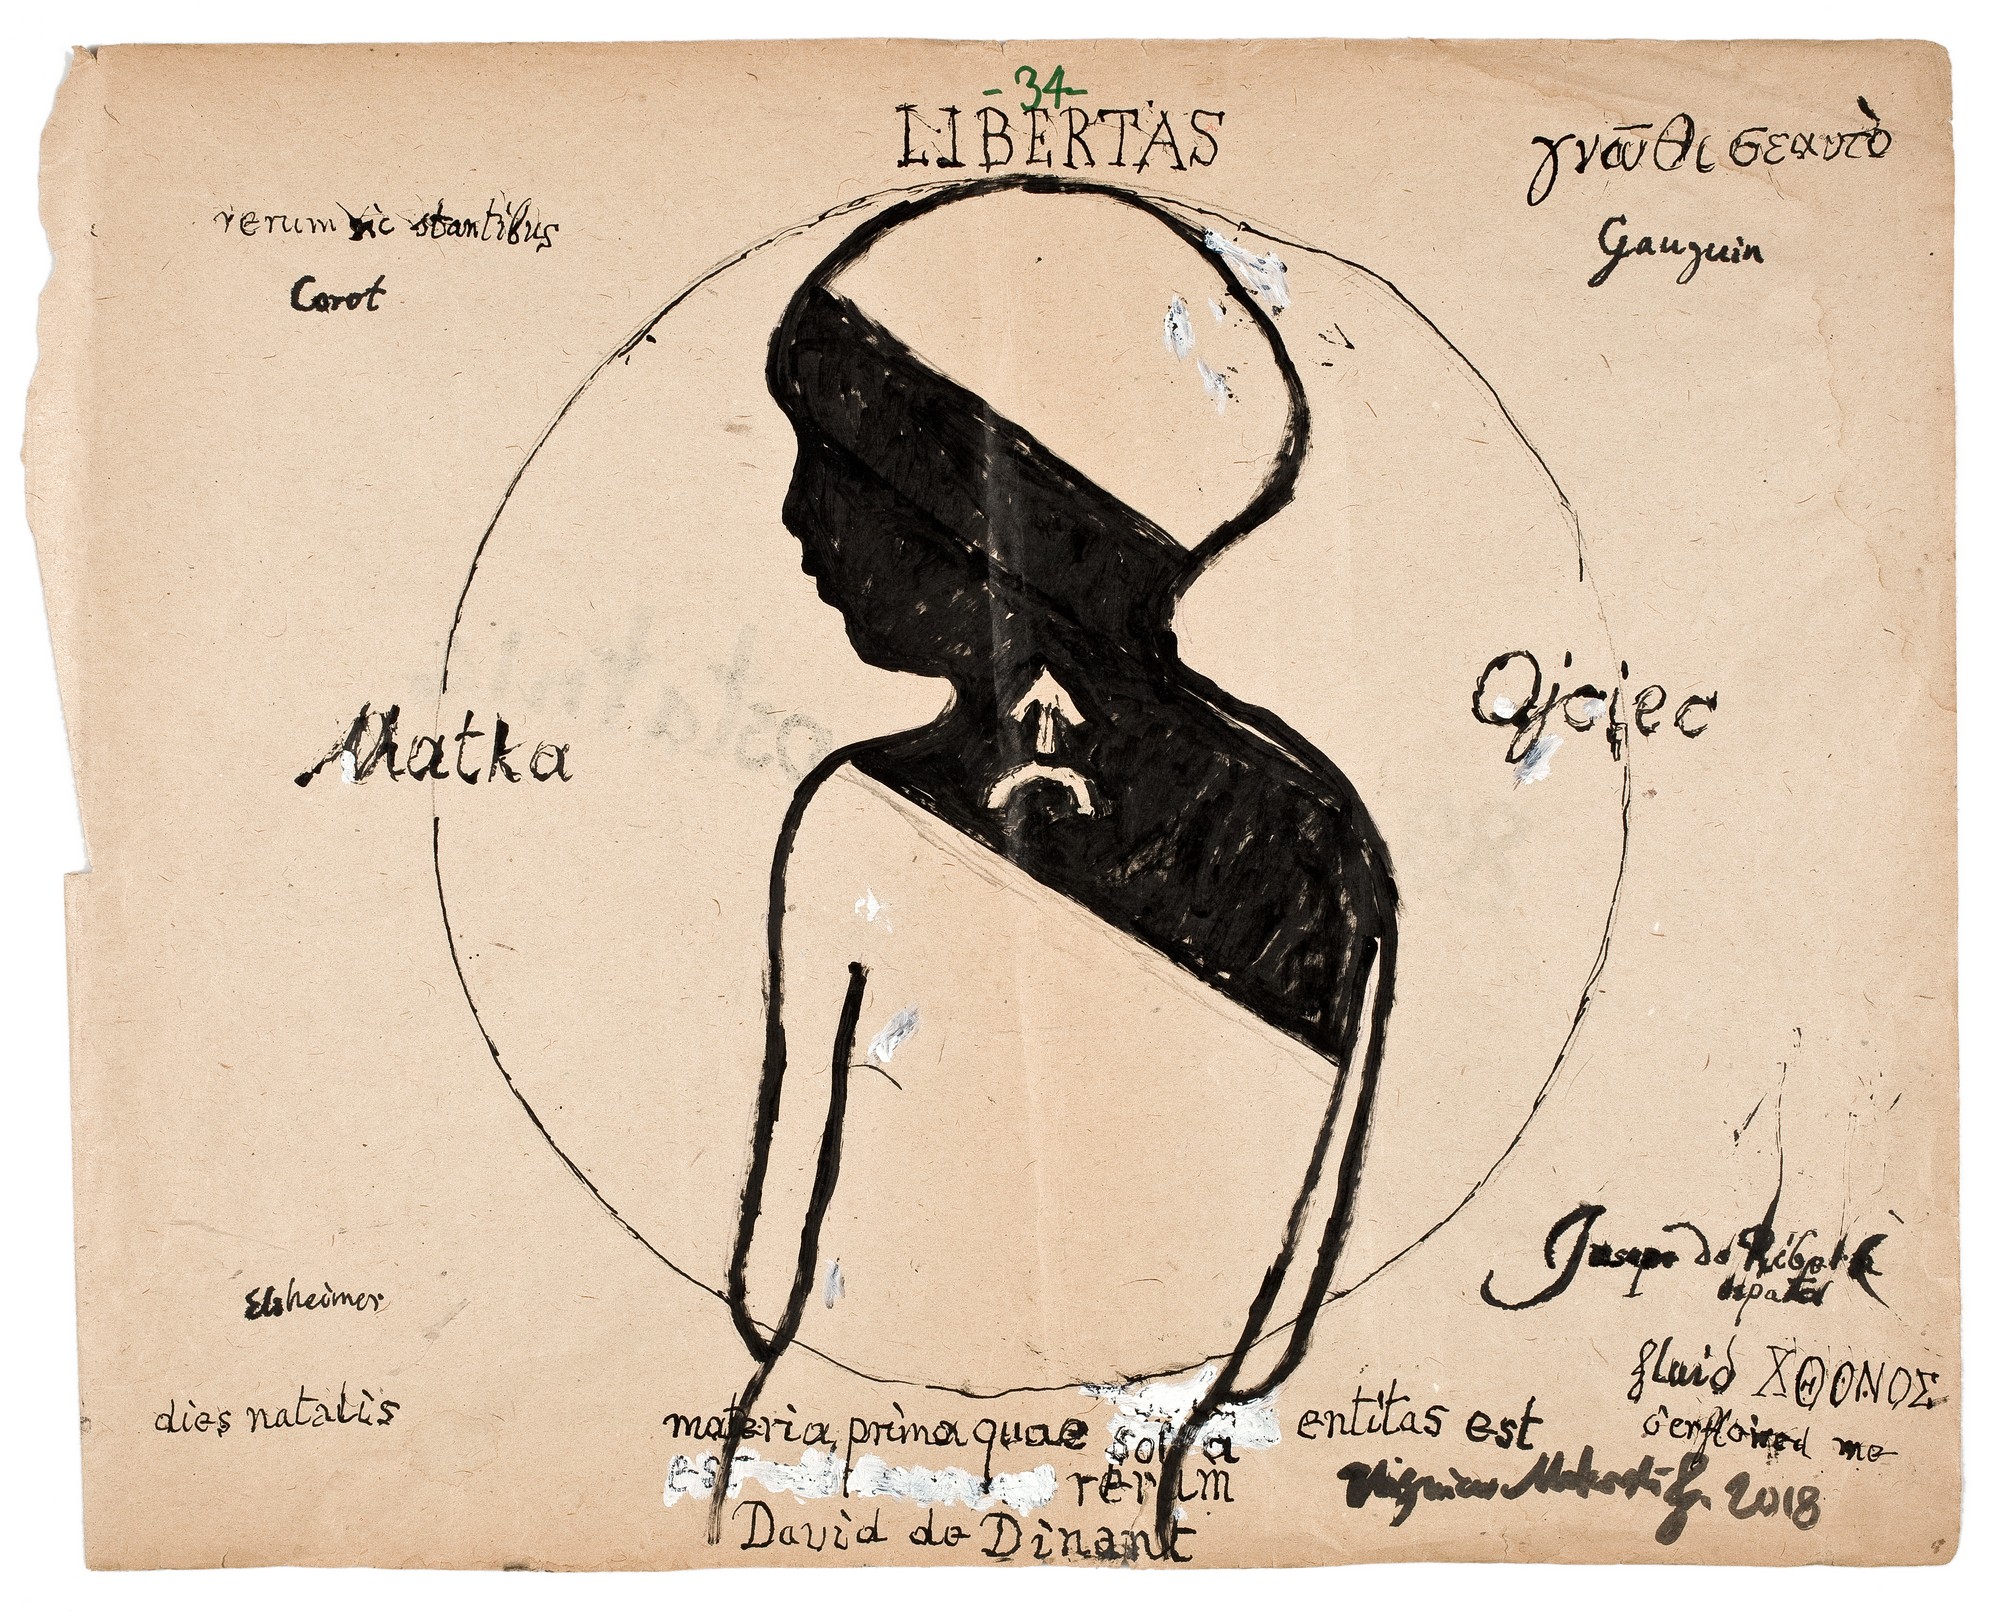 -34-
LIBERTAS
γνῶθι σεαυτὸ
rerum sic stantibus
Gauguin
Corot
Ojciec
Matka
Jusepe de Ribera
Elsheimer
fluid ΧΘΟΝΟΣ
dies natalis
materia prima quae sola entitas est
me
est rerum
2018
David de Dinant